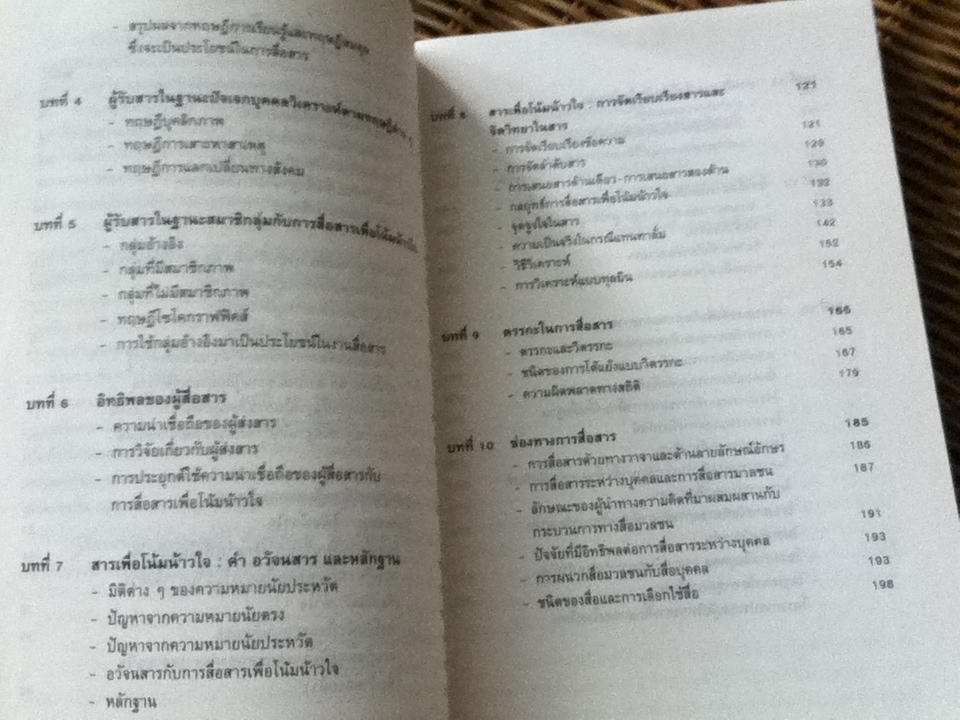 - สรุปผลจากทฤษฎีการเรียนรู้และทฤษฎีสมดุล
ซึ่งจะเป็นประโยชน์ในการสื่อสาร
บทที่ 4 ผู้รับสารในฐานะปัจเจกบุคคลวิเคราะห์ตามทฤษฎีต่าง ๆ
- ทฤษฎีบุคลิกภาพ
- ทฤษฎีการเสาะหาสาเหตุ
- ทฤษฎีการแลกเปลี่ยนทางสังคม
บทที่ 5 ผู้รับสารในฐานะสมาชิกลุ่มกับการสื่อสารเพื่อโน้มน้าวใจ
- กลุ่มอ้างอิง
- กลุ่มที่มีสมาชิกภาพ
- กลุ่มที่ไม่มีสมาชิกภาพ
- ทฤษฎีไซโคกราฟฟิคส์
- การใช้กลุ่มอ้างอิงมาเป็นประโยชน์ในงานสื่อสาร
บทที่ 6 อิทธิพลของผู้สื่อสาร
- ความน่าเชื่อถือของผู้ส่งสาร
- การวิจัยเกี่ยวกับผู้ส่งสาร
- การประยุกต์ใช้ความน่าเชื่อถือของผู้สื่อสารกับ
การสื่อสารเพื่อโน้มน้าวใจ
บทที่ 7 สารเพื่อโน้มน้าวใจ : คำ อวัจนสาร และหลักฐาน
- มิติต่าง ๆ ของความหมายนัยประหวัด
- ปัญหาจากความหมายนัยตรง
- ปัญหาจากความหมายนัยประหวัด
- อวัจนสารกับการสื่อสารเพื่อโน้มน้าวใจ
- หลักฐาน
บทที่ 8 สารเพื่อโน้มน้าวใจ : การจัดเรียบเรียงสารและ 121
จิตวิทยาในสาร
- การจัดเรียบเรียงข้อความ 121
- การจัดลำดับสาร 129
- การเสนอสารด้านเดียว-การเสนอสารสองด้าน 130
- กลยุทธ์การสื่อสารเพื่อโน้มน้าวใจ 132
- จุดจูงใจในสาร 133
- ความเป็นจริงในกรณีแทนทาลั่ม 142
- วิธีวิเคราะห์ 152
- การวิเคราะห์แบบทูลมิน 154
บทที่ 9 ตรรกะในการสื่อสาร 165
- ตรรกะและวิตรรกะ 165
- ชนิดของการโต้แย้งแบบวิตรรกะ 167
- ความผิดพลาดทางสถิติ 179
บทที่ 10 ช่องทางการสื่อสาร 185
- การสื่อสารด้วยทางวาจาและด้านลายลักษณ์อักษร 186
- การสื่อสารระหว่างบุคคลและการสื่อสารมวลชน 187
- ลักษณะของผู้นำทางความคิดที่มาผสมผสานกับ
กระบวนการทางสื่อมวลชน 191
- ปัจจัยที่มีอิทธิพลต่อการสื่อสารระหว่างบุคคล 193
- การผนวกสื่อมวลชนกับสื่อบุคคล 193
- ชนิดของสื่อและการเลือกใช้สื่อ 198